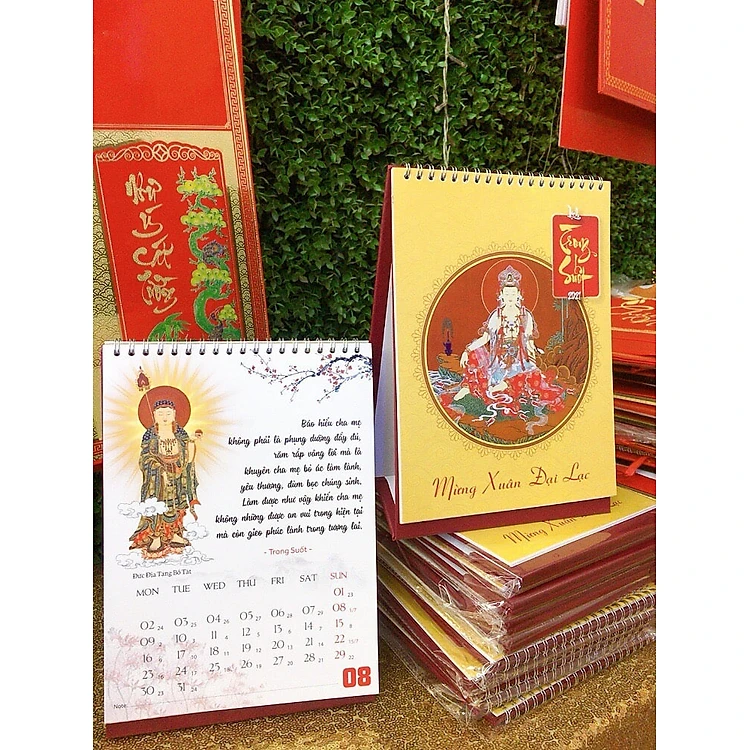 Trong
Suốt
2021
Mừng Xuân Đại Lạc
Mừng Xuân
Báo hiếu cha mẹ
không phải là phụng dưỡng đầy đủ,
răm rắp vâng lời mà là
khuyên cha mẹ bỏ ác làm lành,
yêu thương, đùm bọc chúng sinh.
Làm được như vậy khiến cha mẹ
không những được an vui trong hiện tại
mà còn gieo phúc lành trong tương lai.
- Trong Suốt -
Đức Địa Tạng Bồ Tát
MON TUE WED THU FRI SAT SUN
01 23
02 24 03 25 04 26 05 27 06 28 07 29 08 1/7
09 2 10 3 11 4 12 5 13 6 14 7 15 8
16 9 17 10 18 11 19 12 20 13 21 14 22 15/7
23 16 24 17 25 18 26 19 27 20 28 21 29 22
30 23 31 24
Note:
08